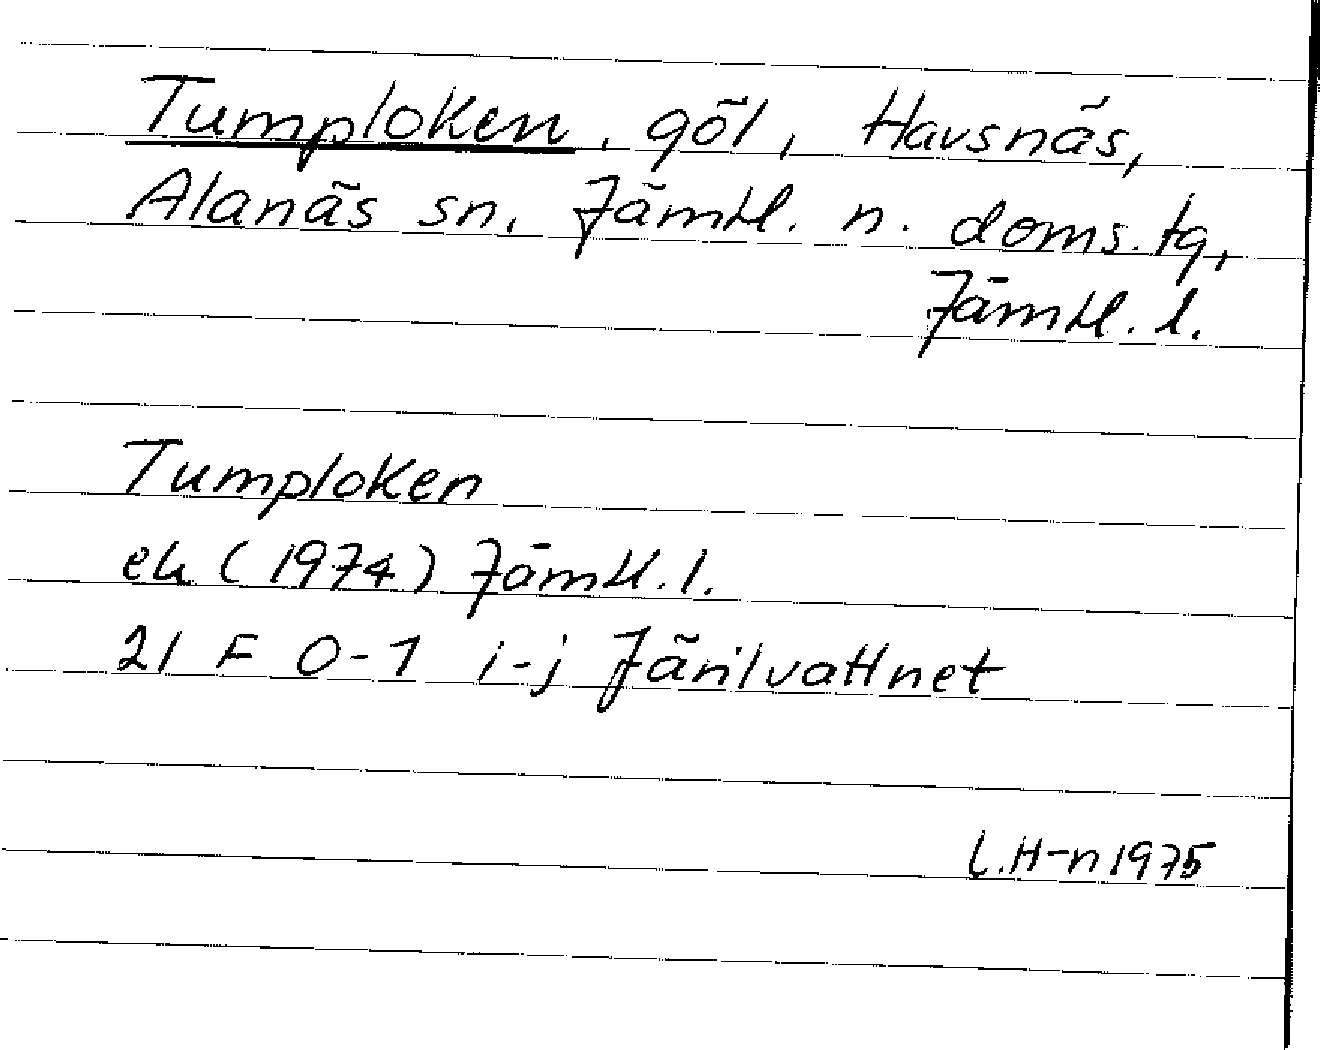 Tumploken, göl, Havsnäs,
Alanäs sn, Jämtl. n. doms.tg,
Jämtl. l.
Tumploken
ek (1974) Jämtl. l.
21 F 0-1 i-j Järilvattnet
L.H-n 1975